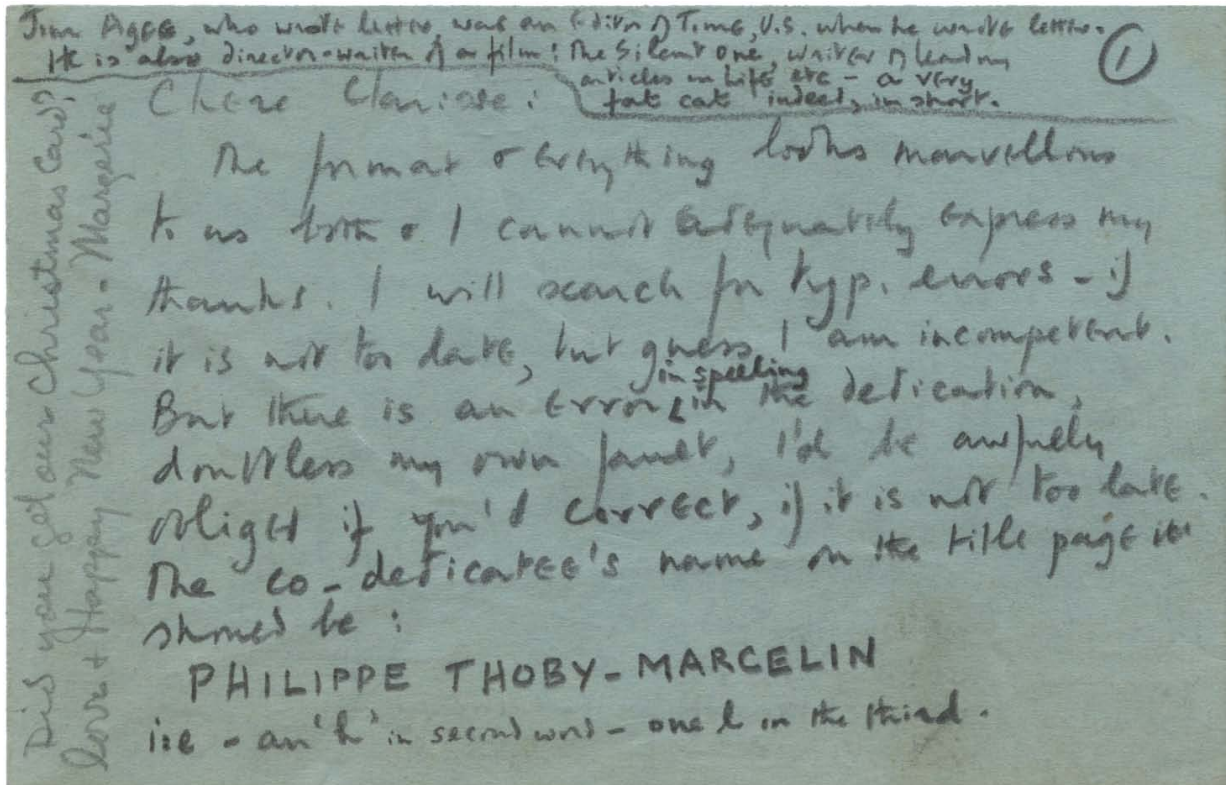 Jim Agee, who wrote letter, was an Editor of Time, U.S. when he wrote letter.
He is also director-writer of a film: The Silent One, writer of leading
articles in Life etc - a very
fat cat indeed, in short.
①
Chere Clarisse:
The format & everything looks marvellous
to us both & I cannot adequately express my
thanks. I will search for typ. errors - if
it is not too late, but guess I am incompetent.
But there is an error in spelling in the dedication,
doubtless my own fault, I'd be awfully
obliged if you'd correct, if it is not too late.
The co-dedicatee's name on the title page
should be:
PHILIPPE THOBY-MARCELIN
i.e - an 'h' in second word - one l in the third.
Did you get our Christmas Card?
love & Happy New Year - Margerie